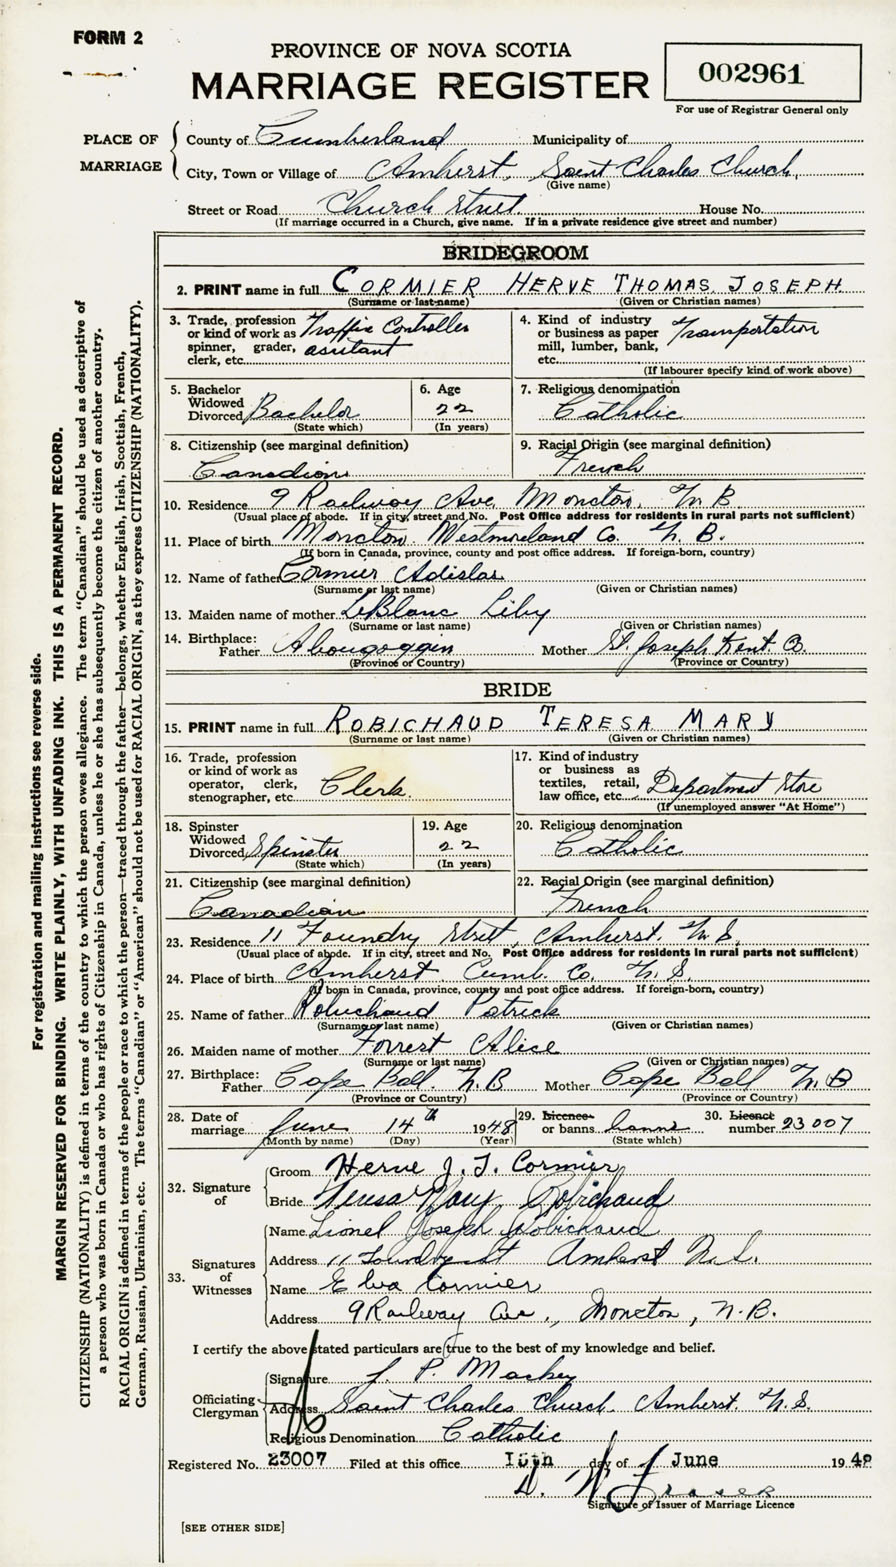 FORM 2
PROVINCE OF NOVA SCOTIA
MARRIAGE REGISTER
002961
For use of Registrar General only
PLACE OF MARRIAGE
County of Cumberland Municipality of
City, Town or Village of Amherst, Saint Charles Church,
(Give name)
Street or Road Church Street House No.
(If marriage occurred in a Church, give name. If in a private residence give street and number)
BRIDEGROOM
2. PRINT name in full CORMIER HERVE THOMAS JOSEPH
(Surname or last name) (Given or Christian names)
3. Trade, profession or kind of work as spinner, grader, clerk, etc. Traffic Controller assitant
4. Kind of industry or business as paper mill, lumber, bank, etc. Transportation
(If labourer specify kind of work above)
5. Bachelor Widowed Divorced Bachelor
(State which)
6. Age 22
(In years)
7. Religious denomination Catholic
8. Citizenship (see marginal definition) Canadian
9. Racial Origin (see marginal definition) French
10. Residence 9 Railway Ave Moncton, N.B.
(Usual place of abode. If in city, street and No. Post Office address for residents in rural parts not sufficient)
11. Place of birth Moncton Westmoreland Co. N.B.
(If born in Canada, province, county and post office address. If foreign-born, country)
12. Name of father Cormier Adislas
(Surname or last name) (Given or Christian names)
13. Maiden name of mother LeBlanc Lily
(Surname or last name) (Given or Christian names)
14. Birthplace: Father Abougoggin Mother St. Joseph Kent Co.
(Province or Country) (Province or Country)
BRIDE
15. PRINT name in full ROBICHAUD TERESA MARY
(Surname or last name) (Given or Christian names)
16. Trade, profession or kind of work as operator, clerk, stenographer, etc. Clerk
17. Kind of industry or business as textiles, retail, law office, etc. Department Store
(If unemployed answer "At Home")
18. Spinster Widowed Divorced Spinster
(State which)
19. Age 22
(In years)
20. Religious denomination Catholic
21. Citizenship (see marginal definition) Canadian
22. Racial Origin (see marginal definition) French
23. Residence 11 Foundry Street, Amherst N.S.
(Usual place of abode. If in city, street and No. Post Office address for residents in rural parts not sufficient)
24. Place of birth Amherst Cumb. Co. N.S.
(If born in Canada, province, county and post office address. If foreign-born, country)
25. Name of father Robichaud Patrick
(Surname or last name) (Given or Christian names)
26. Maiden name of mother Forrest Alice
(Surname or last name) (Given or Christian names)
27. Birthplace: Father Cape Ball N.B Mother Cape Ball N.B
(Province or Country) (Province or Country)
28. Date of marriage June 14th 1948
(Month by name) (Day) (Year)
29. Licence or banns banns
(State which)
30. Licence number 23007
32. Signature of
Groom Herve J. T. Cormier
Bride Teresa Mary Robichaud
33. Signatures of Witnesses
Name Lionel Joseph Robichaud
Address 11 Foundry St Amherst N.S.
Name Elva Cormier
Address 9 Railway Ave., Moncton, N.B.
I certify the above stated particulars are true to the best of my knowledge and belief.
Officiating Clergyman
Signature J. P. Mackey
Address Saint Charles Church, Amherst. N.S.
Religious Denomination Catholic
Registered No. 23007 Filed at this office day of June 1948
D. W. Fraser
Signature of Issuer of Marriage Licence
[SEE OTHER SIDE]
For registration and mailing instructions see reverse side.
MARGIN RESERVED FOR BINDING. WRITE PLAINLY, WITH UNFADING INK. THIS IS A PERMANENT RECORD.
CITIZENSHIP (NATIONALITY) is defined in terms of the country to which the person owes allegiance. The term "Canadian" should be used as descriptive of
a person who was born in Canada or who has rights of Citizenship in Canada, unless he or she has subsequently become the citizen of another country.
RACIAL ORIGIN is defined in terms of the people or race to which the person—traced through the father—belongs, whether English, Irish, Scottish, French,
German, Russian, Ukrainian, etc. The terms "Canadian" or "American" should not be used for RACIAL ORIGIN, as they express CITIZENSHIP (NATIONALITY).